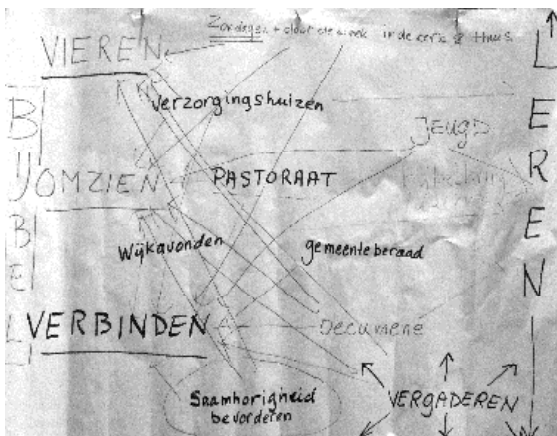 Zondagen + door de week in de kerk & Huus
VIEREN
Verzorgingshuizen
JEUGD
BIJBEL
OMZIEN
PASTORAAT
Wijkavonden
gemeenteberaad
VERBINDEN
Oecumene
Saamhorigheid
bevorderen
VERGADEREN
LEREN